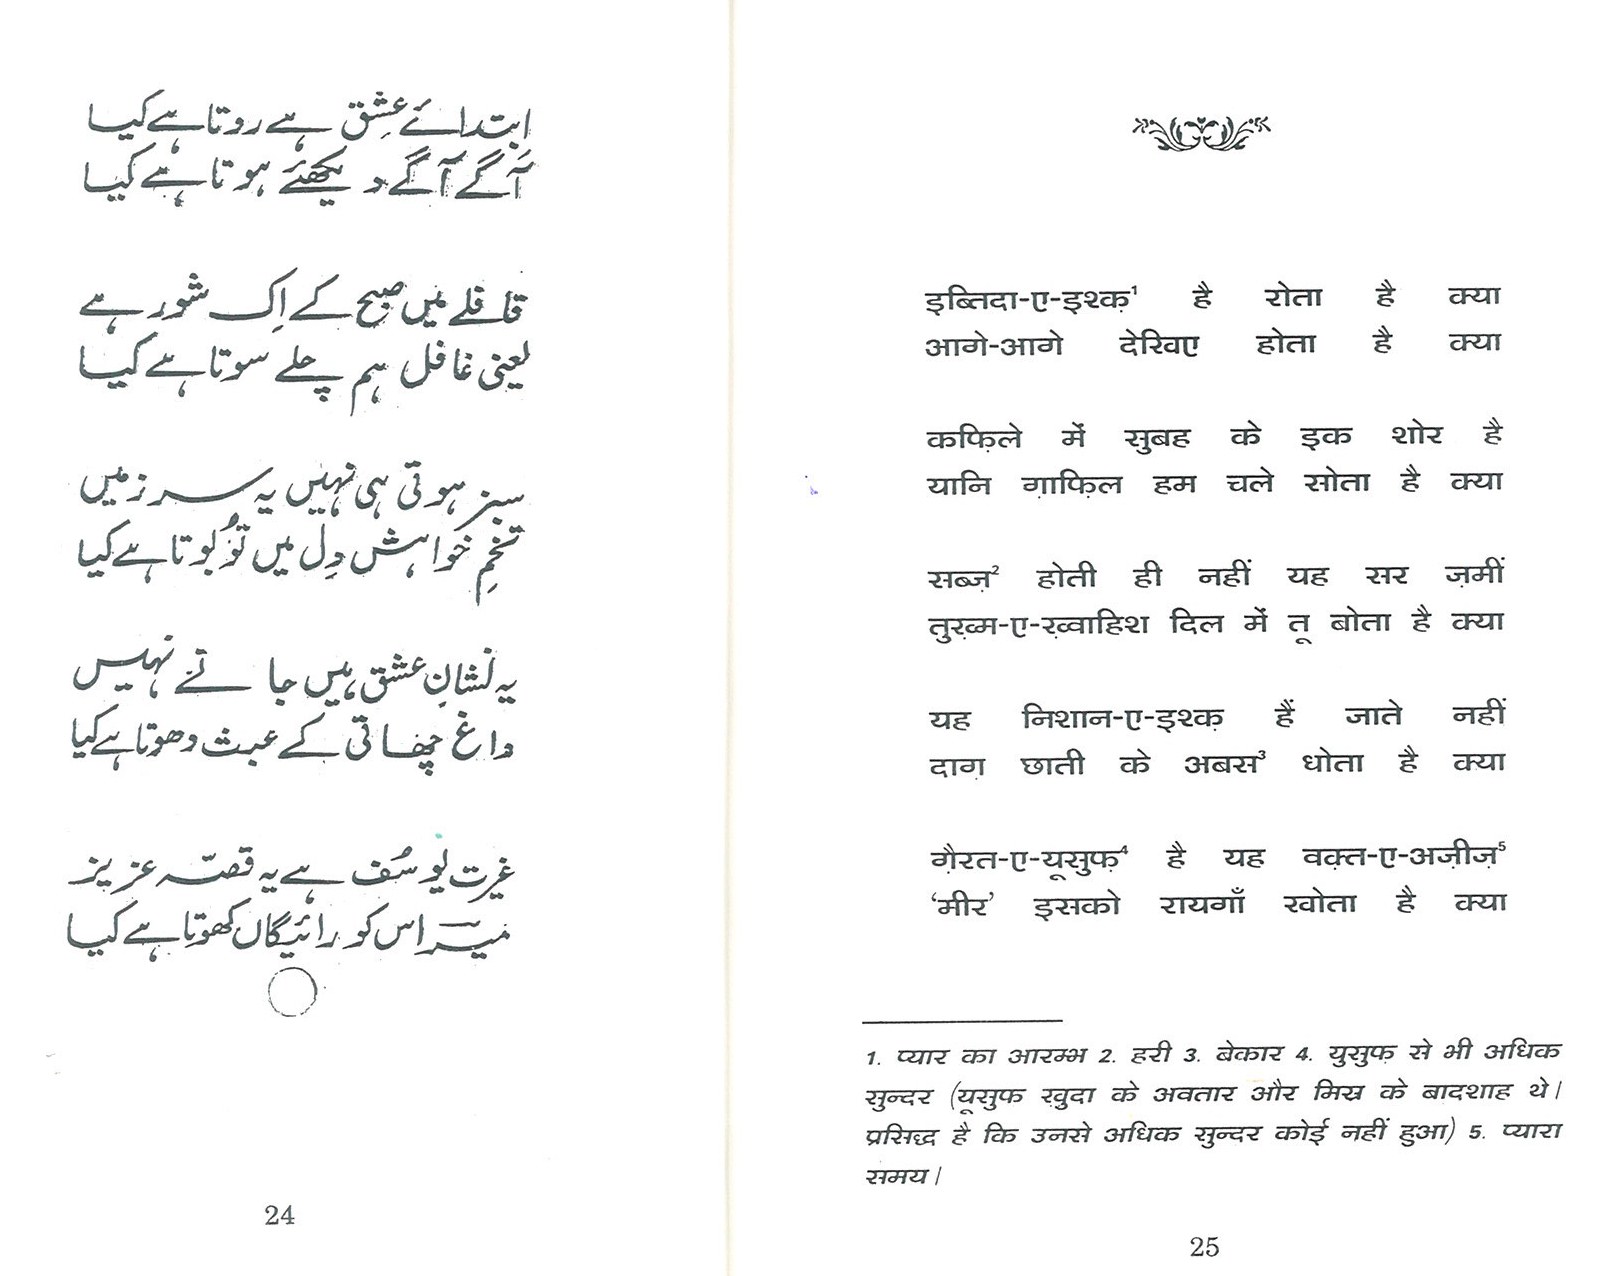 اِبتدائے عِشق ہے روتا ہے کیا
آگے آگے دیکھئے ہوتا ہے کیا
قافلے میں صبح کے اِک شور ہے
یعنی غافل ہم چلے سوتا ہے کیا
سبز ہوتی ہی نہیں یہ سرزمیں
تخمِ خواہش دِل میں تُو بوتا ہے کیا
یہ نشانِ عشق ہیں جاتے نہیں
داغ چھاتی کے عبث دھوتا ہے کیا
غیرت یوسُف ہے یہ قصّہ عزیز
میرؔ اس کو رائیگاں کھوتا ہے کیا
24
इब्तिदा-ए-इश्क़¹ है रोता है क्या
आगे-आगे देखिए होता है क्या
कफ़िले में सुबह के इक शोर है
यानि ग़ाफ़िल हम चले सोता है क्या
सब्ज़² होती ही नहीं यह सर ज़मीं
तुख़्म-ए-ख़्वाहिश दिल में तू बोता है क्या
यह निशान-ए-इश्क़ हैं जाते नहीं
दाग़ छाती के अबस³ धोता है क्या
ग़ैरत-ए-यूसुफ़⁴ है यह वक़्त-ए-अज़ीज़⁵
‘मीर’ इसको रायगाँ खोता है क्या
1. प्यार का आरम्भ 2. हरी 3. बेकार 4. युसुफ़ से भी अधिक
सुन्दर (यूसुफ ख़ुदा के अवतार और मिस्र के बादशाह थे।
प्रसिद्ध है कि उनसे अधिक सुन्दर कोई नहीं हुआ) 5. प्यारा
समय।
25